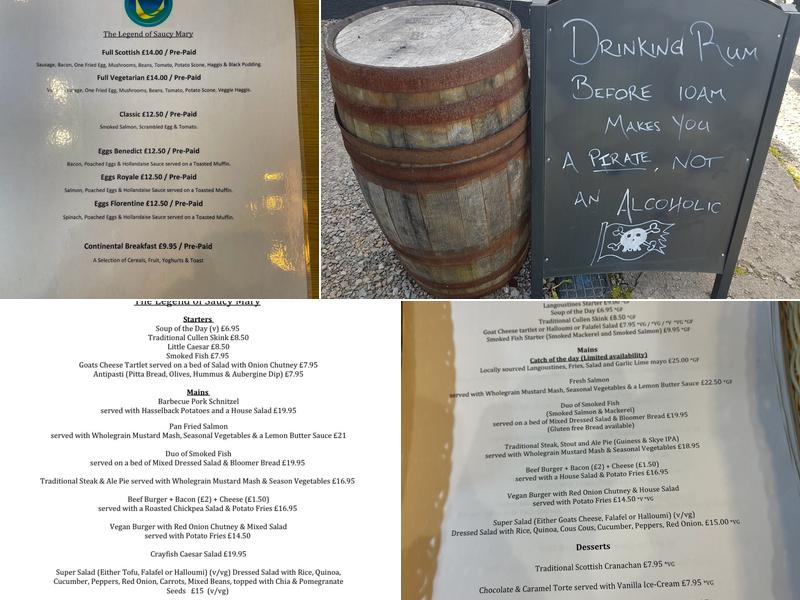 The Legend of Saucy Mary
Full Scottish £14.00 / Pre-Paid
Sausage, Bacon, One Fried Egg, Mushrooms, Beans, Tomato, Potato Scone, Haggis & Black Pudding.
Full Vegetarian £14.00 / Pre-Paid
One Fried Egg, Mushrooms, Beans, Tomato, Potato Scone, Veggie Haggis.
Classic £12.50 / Pre-Paid
Smoked Salmon, Scrambled Egg & Tomato.
Eggs Benedict £12.50 / Pre-Paid
Bacon, Poached Eggs & Hollandaise Sauce served on a Toasted Muffin.
Eggs Royale £12.50 / Pre-Paid
Salmon, Poached Eggs & Hollandaise Sauce served on a Toasted Muffin.
Eggs Florentine £12.50 / Pre-Paid
Spinach, Poached Eggs & Hollandaise Sauce served on a Toasted Muffin.
Continental Breakfast £9.95 / Pre-Paid
A Selection of Cereals, Fruit, Yoghurts & Toast
DRINKING RUM
BEFORE 10AM
MAKES YOU
A PIRATE, NOT
AN ALCOHOLIC
The Legend of Saucy Mary
Starters
Soup of the Day (v) £6.95
Traditional Cullen Skink £8.50
Little Caesar £8.50
Smoked Fish £7.95
Goats Cheese Tartlet served on a bed of Salad with Onion Chutney £7.95
Antipasti (Pitta Bread, Olives, Hummus & Aubergine Dip) £7.95
Mains
Barbecue Pork Schnitzel
served with Hasselback Potatoes and a House Salad £19.95
Pan Fried Salmon
served with Wholegrain Mustard Mash, Seasonal Vegetables & a Lemon Butter Sauce £21
Duo of Smoked Fish
served on a bed of Mixed Dressed Salad & Bloomer Bread £19.95
Traditional Steak & Ale Pie served with Wholegrain Mustard Mash & Season Vegetables £16.95
Beef Burger + Bacon (£2) + Cheese (£1.50)
served with a Roasted Chickpea Salad & Potato Fries £16.95
Vegan Burger with Red Onion Chutney & Mixed Salad
served with Potato Fries £14.50
Crayfish Caesar Salad £19.95
Super Salad (Either Tofu, Falafel or Halloumi) (v/vg) Dressed Salad with Rice, Quinoa,
Cucumber, Peppers, Red Onion, Carrots, Mixed Beans, topped with Chia & Pomegranate
Seeds £15 (v/vg)
Langoustines Starter £9.00 *GF
Soup of the Day £6.95 *GF
Traditional Cullen Skink £8.50 *GF
Goat Cheese tartlet or Halloumi or Falafel Salad £7.95 *VG / *VG / *V *VG *GF
Smoked Fish Starter (Smoked Mackerel and Smoked Salmon) £9.95 *GF
Mains
Catch of the day (Limited availability)
Locally sourced Langoustines, Fries, Salad and Garlic Lime mayo £25.00 *GF
Fresh Salmon
served with Wholegrain Mustard Mash, Seasonal Vegetables & a Lemon Butter Sauce £22.50 *GF
Duo of Smoked Fish
(Smoked Salmon & Mackerel)
served on a bed of Mixed Dressed Salad & Bloomer Bread £19.95
(Gluten free Bread available)
Traditional Steak, Stout and Ale Pie (Guiness & Skye IPA)
served with Wholegrain Mustard Mash & Seasonal Vegetables £18.95
Beef Burger + Bacon (£2) + Cheese (£1.50)
served with a House Salad & Potato Fries £16.95
Vegan Burger with Red Onion Chutney & House Salad
served with Potato Fries £14.50 *V *VG
Super Salad (Either Goats Cheese, Falafel or Halloumi) (v/vg)
Dressed Salad with Rice, Quinoa, Cous Cous, Cucumber, Peppers, Red Onion. £15.00 *VG
Desserts
Traditional Scottish Cranachan £7.95 *VG
Chocolate & Caramel Torte served with Vanilla Ice-Cream £7.95 *VG